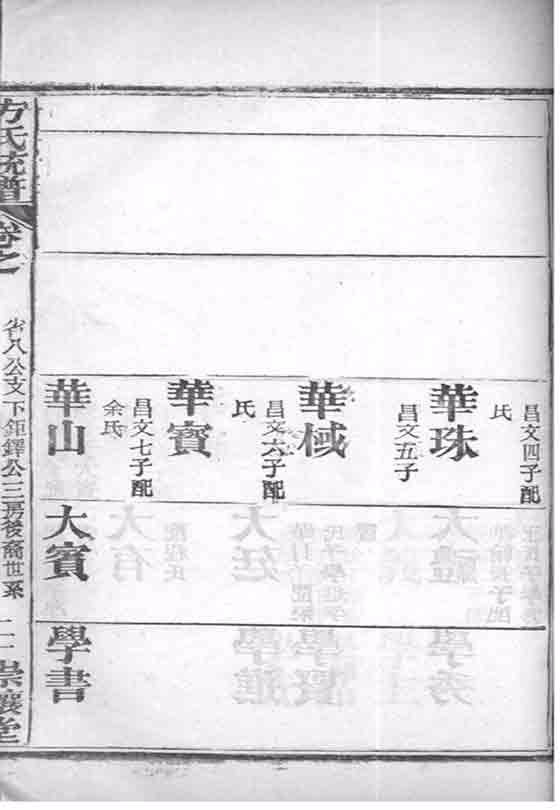 昌文四子配
氏
華珠
昌文五子
華棫
昌文六子配
氏
華賓
昌文七子配
余氏
華山
大賓
學書
方氏統譜
卷之
省八公支下鉅鐸公三房後裔世系
崇讓堂